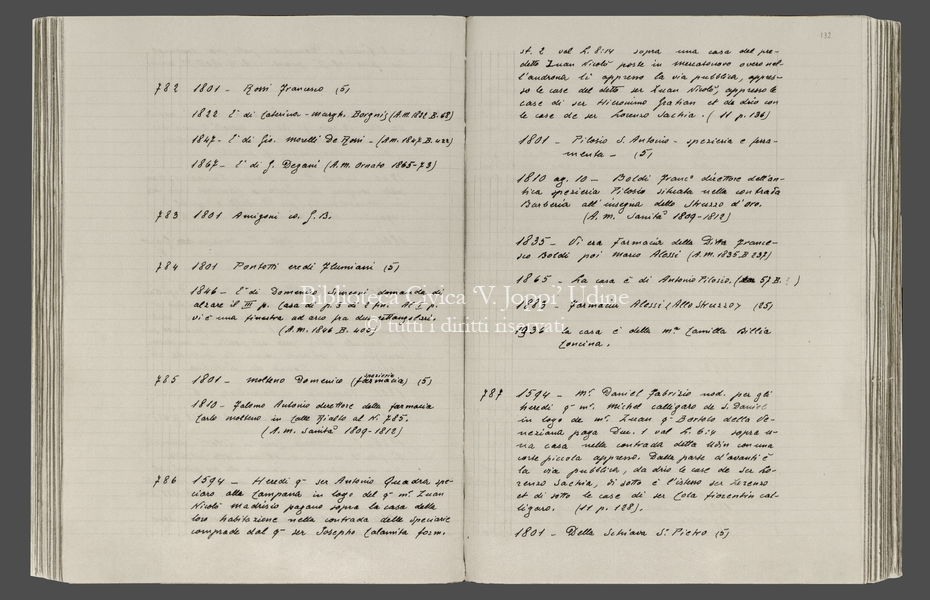 782 1801 - Rossi Francesco (5)
1822 E' di Caterina - Margh. Borgnis (A.M. 1822 B. 68)
1847 - E' di Gio. Morelli De Rossi - (A.M. 1847 B. 422)
1867 - E' di G. Degani (A.M. Ornato 1865-73)
783 1801 Amigoni co. G.B.
784 1801 Pontotti eredi Flumiani (5)
1846 - E' di Domenico domanda di
alzare il III p. Casa di p. 3 di 2 fin. Al I p.
vi è una finestra ad arco fra due rettangolari.
(A.M. 1846 B. 400)
785 1801 - Molteno Domenico (farmacia) (5)
spezieria
1810 - Falomo Antonio direttore della farmacia
Carlo Molteno in Calle Rialto al N. 785.
(A.M. Sanità 1809-1812)
786 1594 - Heredi q.m ser Antonio Quadra spe-
ciaro alla Campana in logo del q.m m.r Zuan
Nicolò Madrisio pagano sopra la casa della
loro habitazione nella contrada delle speciarie
comprade dal q.m ser Josepho Calamita form.
132
st. 2 val L. 8:14 sopra una casa del pre-
detto Zuan Nicolò poste in mercatonovo overo nel-
l'androna li appresso la via pubblica, appres-
so le case del detto ser Zuan Nicolò, appresso le
case di ser Hieronimo Gratian et da drio con
le case de ser Lorenzo Sachia. (11 p. 136)
1801 - Pilosio S. Antonio - spezieria e ferra-
menta - (5)
1810 ag. 10 - Boldi Franc.o direttore dell'an-
tica spezieria Pilosio situata nella contrada
Barberia all'insegna dello Struzzo d'oro.
(A.M. Sanità 1809-1812)
1835 - Vi era farmacia della Ditta France-
sco Boldi poi Marco Alessi (A.M. 1835 B 237)
1865 - La casa è di Antonio Pilosio. 57 B.
1883 - Farmacia Alessi "Allo Struzzo" (25)
1932 la casa è della m.a Camilla Billia
Concina.
787 1594 - M.r Daniel Fabrizio nod. per gli
heredi q.m m.r Michel calligaro de S. Daniel
in logo de m.r Zuan q.m Bortolo della Ve-
neziana paga Duc. 1 val L. 6:4 sopra u-
na casa nella contrada detta Udin con una
corte piccola appresso. Dalla parte d'avanti è
la via pubblica, da drio le case de ser Lo-
renzo Sachia, di sotto è l'istesso ser Lorenzo
et di sotto le case di ser Cola fiorentin cal-
ligaro. (11 p. 128).
1801 - Della Schiava S.r Pietro (5)
Biblioteca Civica 'V. Joppi' Udine
© tutti i diritti riservati